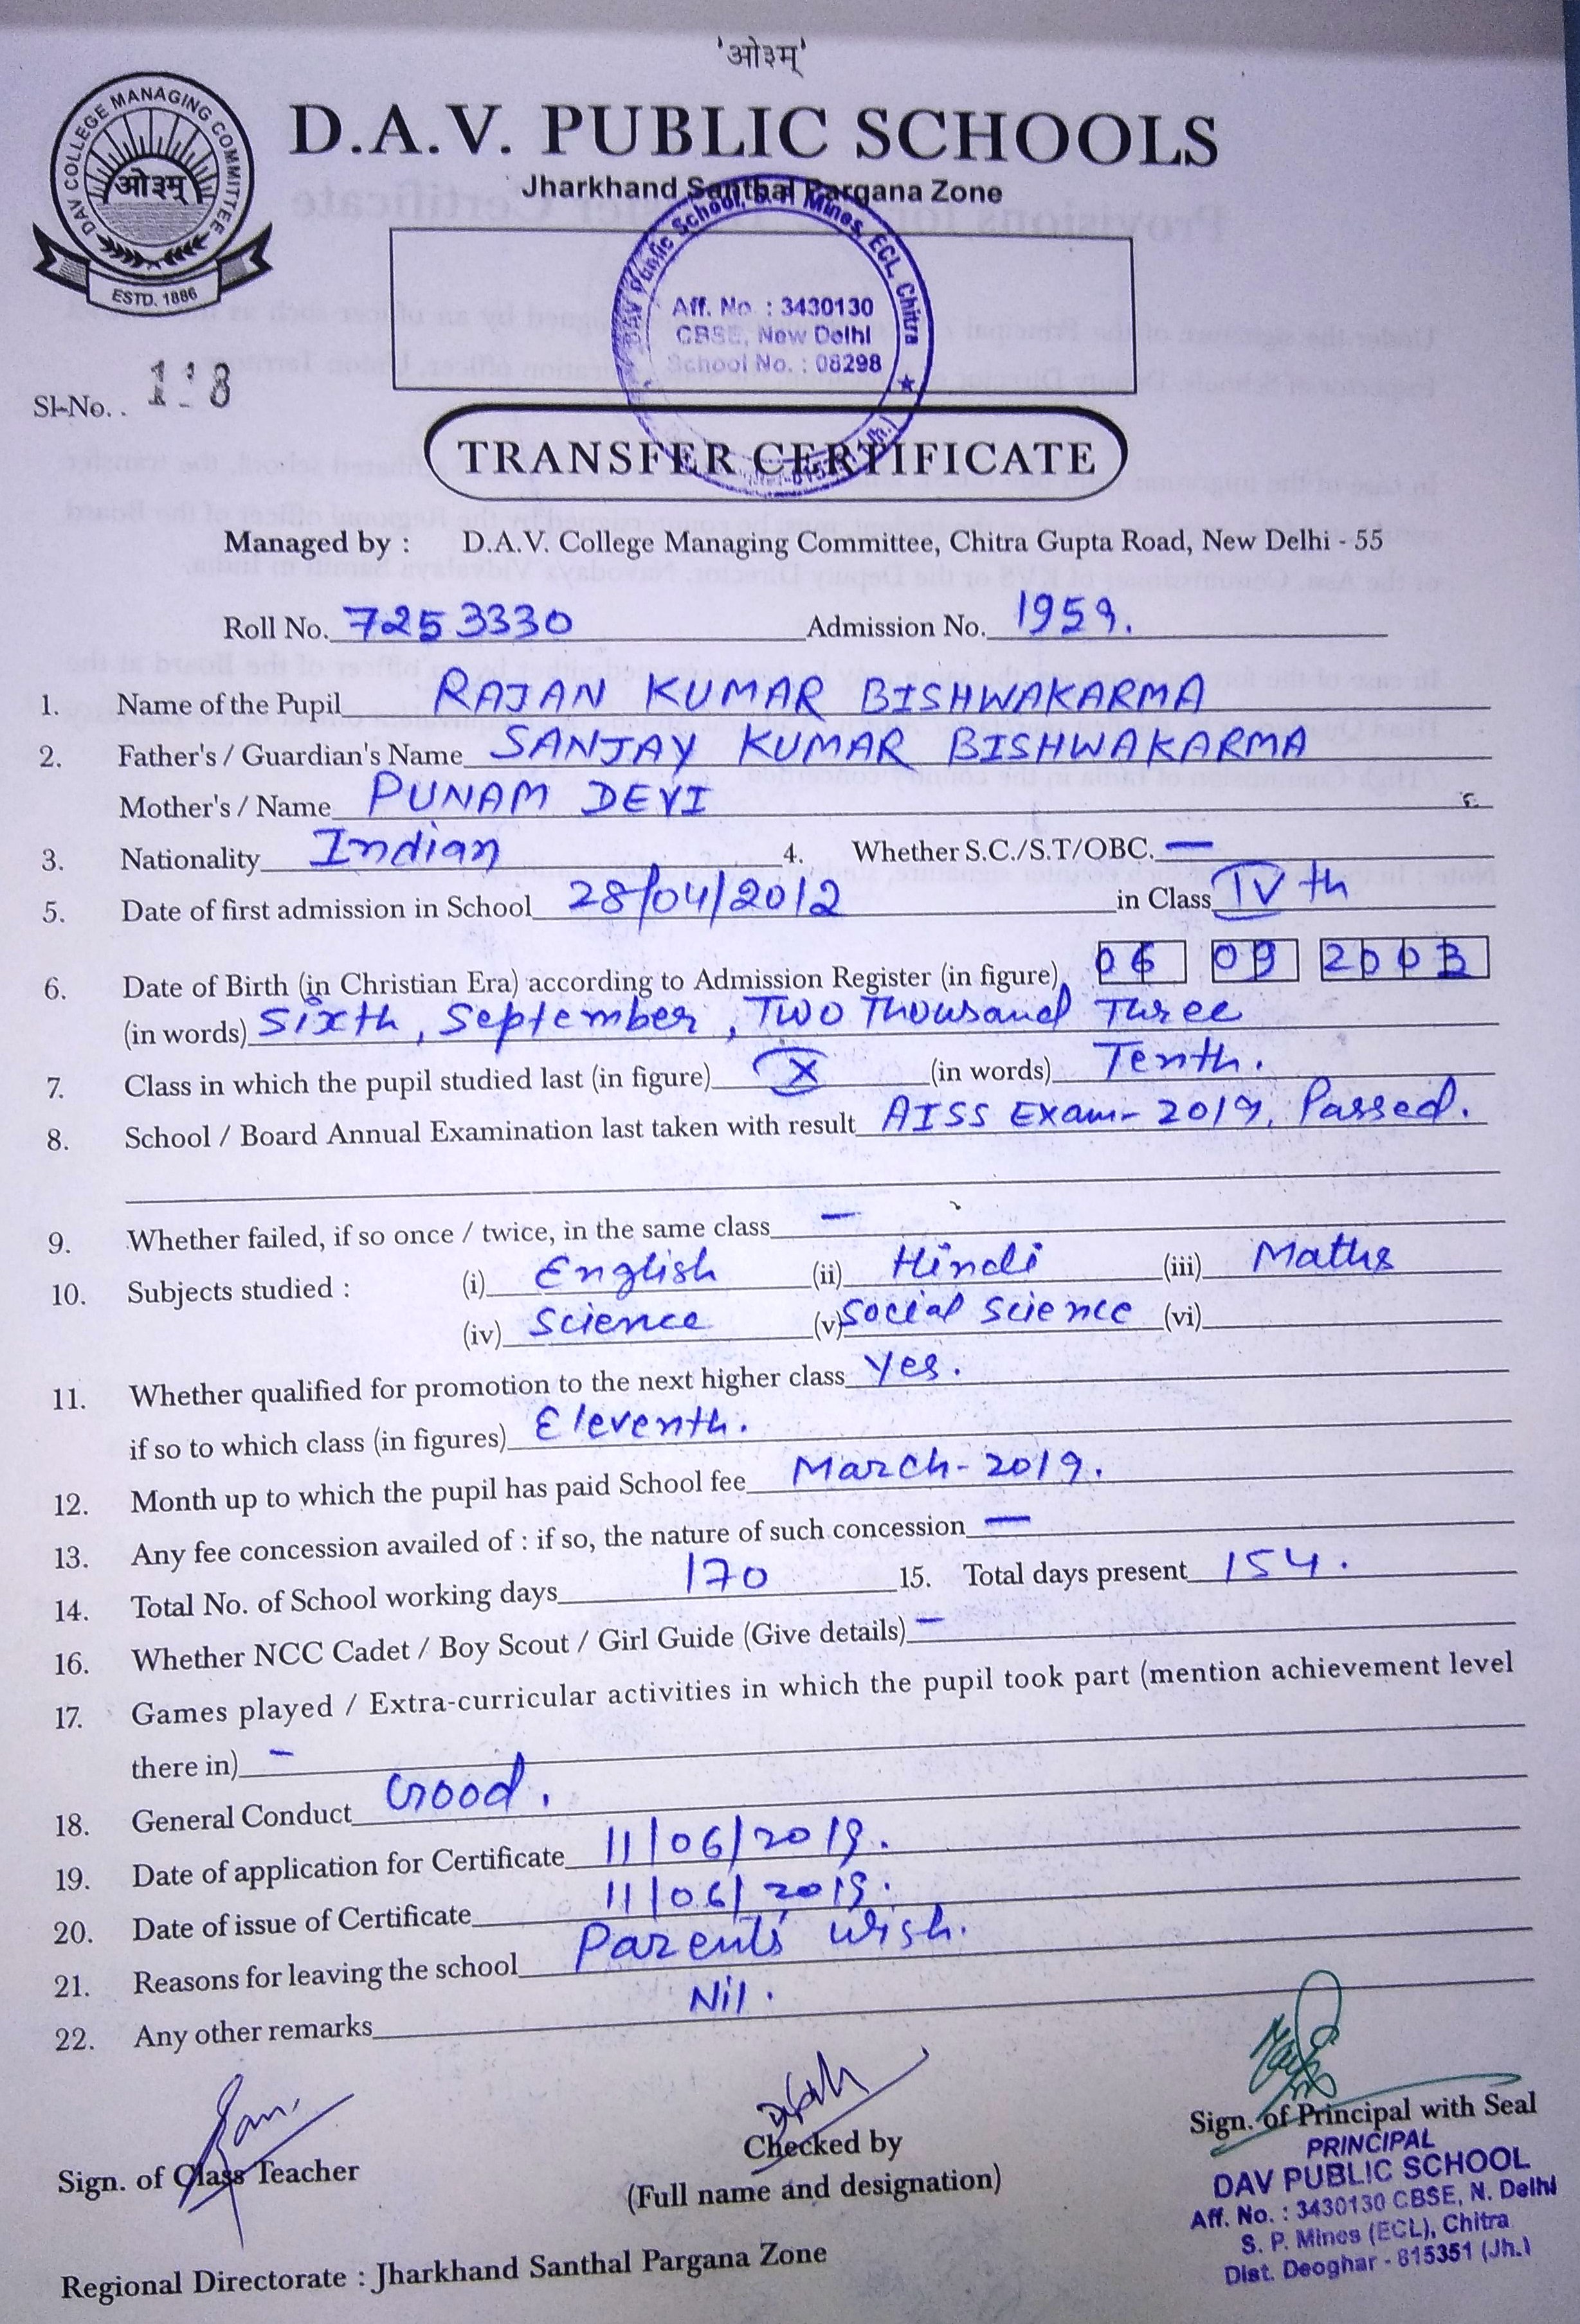 'ओ३म्'
D.A.V. PUBLIC SCHOOLS
Jharkhand Santhal Pargana Zone
DAV COLLEGE MANAGING COMMITTEE
ओ३म्
ESTD. 1886
DAV Public School, S. P. Mines, ECL, Chitra
Aff. No : 3430130
CBSE, New Delhi
School No. : 08298
Sl-No. . 1 8
TRANSFER CERTIFICATE
Managed by : D.A.V. College Managing Committee, Chitra Gupta Road, New Delhi - 55
Roll No. 7253330 Admission No. 1959.
1. Name of the Pupil RAJAN KUMAR BISHWAKARMA
2. Father's / Guardian's Name SANJAY KUMAR BISHWAKARMA
Mother's / Name PUNAM DEVI
3. Nationality Indian 4. Whether S.C./S.T/OBC. —
5. Date of first admission in School 28/04/2012 in Class IV th
6. Date of Birth (in Christian Era) according to Admission Register (in figure) 06 09 2003
(in words) Sixth, September, Two Thousand Three
7. Class in which the pupil studied last (in figure) X (in words) Tenth.
8. School / Board Annual Examination last taken with result AISS Exam- 2019, Passed.
9. Whether failed, if so once / twice, in the same class —
10. Subjects studied : (i) English (ii) Hindi (iii) Maths
(iv) Science (v) Social Science (vi)
11. Whether qualified for promotion to the next higher class Yes.
if so to which class (in figures) Eleventh.
12. Month up to which the pupil has paid School fee March-2019.
13. Any fee concession availed of : if so, the nature of such concession —
14. Total No. of School working days 170 15. Total days present 154.
16. Whether NCC Cadet / Boy Scout / Girl Guide (Give details) —
17. Games played / Extra-curricular activities in which the pupil took part (mention achievement level
there in) —
18. General Conduct Good.
19. Date of application for Certificate 11/06/2019.
20. Date of issue of Certificate 11/06/2019.
21. Reasons for leaving the school Parents' wish.
22. Any other remarks Nil.
Sign. of Class Teacher
Checked by
(Full name and designation)
Sign. of Principal with Seal
PRINCIPAL
DAV PUBLIC SCHOOL
Aff. No. : 3430130 CBSE, N. Delhi
S. P. Mines (ECL), Chitra
Dist. Deoghar - 815351 (Jh.)
Regional Directorate : Jharkhand Santhal Pargana Zone